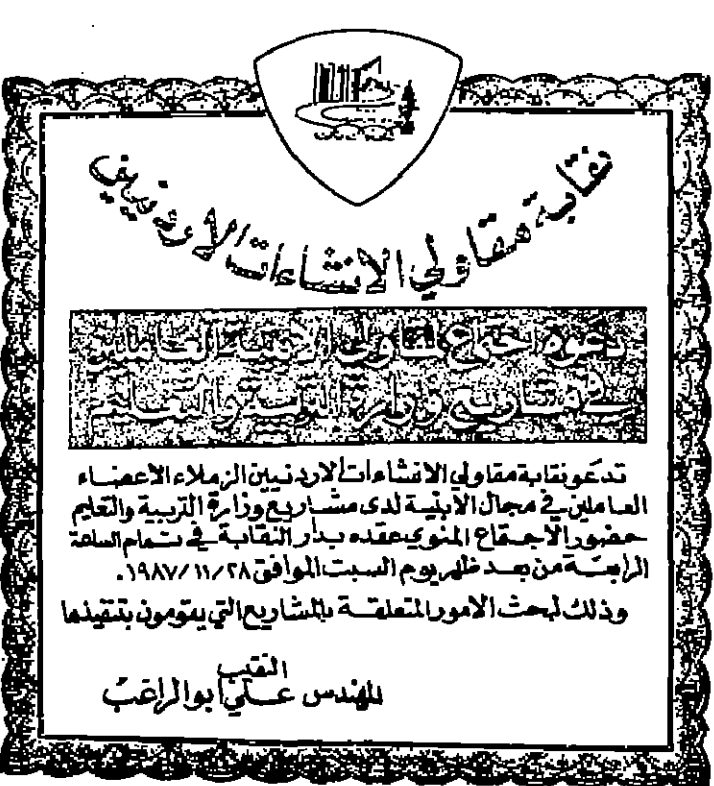 نقابة مقاولي الانشاءات الاردنيين
دعوة اجتماع لمقاولي الابنية العاملين
في مشاريع وزارة التربية والتعليم
تدعو نقابة مقاولي الانشاءات الاردنيين الزملاء الاعضاء
العاملين في مجال الابنية لدى مشاريع وزارة التربية والتعليم
حضور الاجتماع المنوي عقده بدار النقابة في تمام الساعة
الرابعة من بعد ظهر يوم السبت الموافق ١٩٨٧/١١/٢٨.
وذلك لبحث الامور المتعلقة بالمشاريع التي يقومون بتنفيذها
النقيب
المهندس علي ابو الراغب